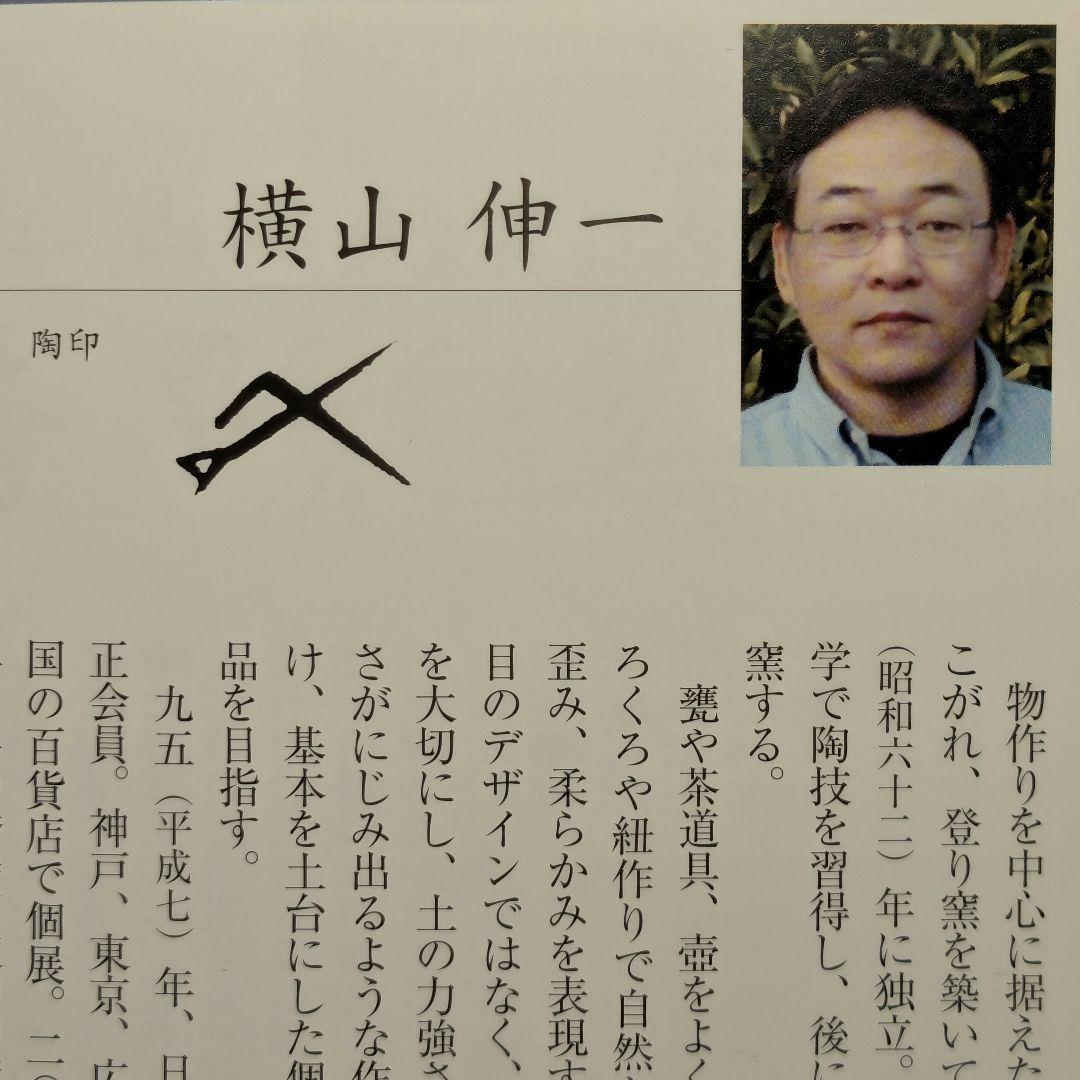 横山 伸一
陶印
物作りを中心に据えた
こがれ、登り窯を築いて
(昭和六十二)年に独立。
学で陶技を習得し、後に
窯する。
甕や茶道具、壺をよく
ろくろや紐作りで自然
歪み、柔らかみを表現す
目のデザインではなく、
を大切にし、土の力強さ
さがにじみ出るような作
け、基本を土台にした個
品を目指す。
九五(平成七)年、日
正会員。神戸、東京、広
国の百貨店で個展。二〇